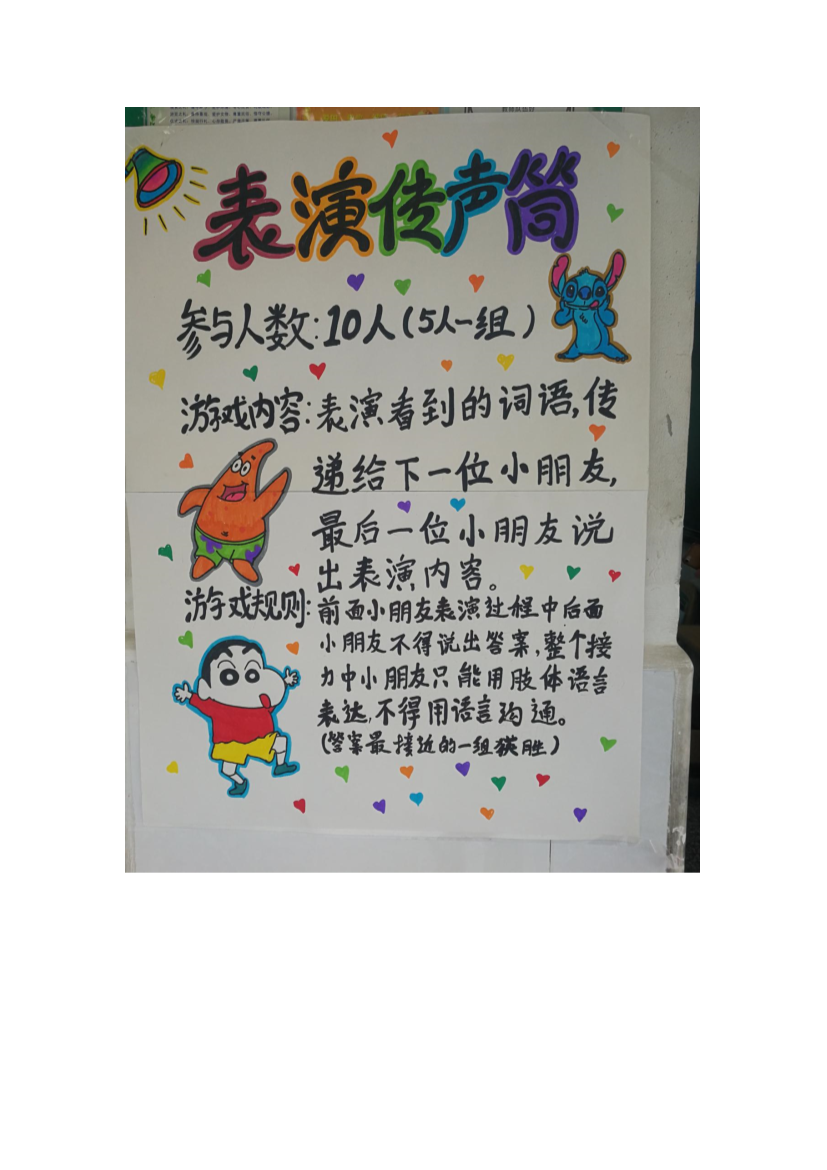 表演传声筒
参与人数:10人(5人一组)
游戏内容:表演看到的词语,传
递给下一位小朋友,
最后一位小朋友说
出表演内容。
游戏规则:前面小朋友表演过程中后面
小朋友不得说出答案,整个接
力中小朋友只能用肢体语言
表达,不得用语言沟通。
(答案最接近的一组获胜)